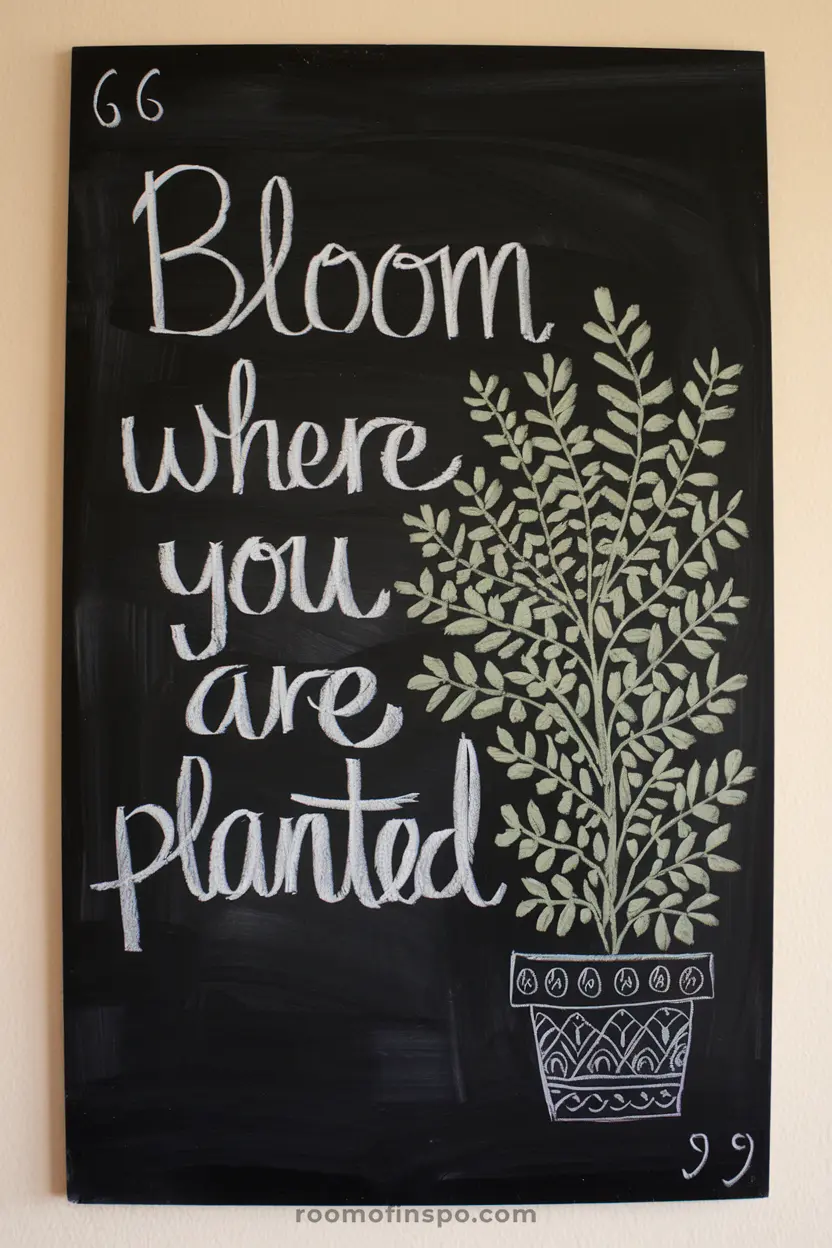 “
Bloom
where
you
are
planted
”
roomofinspo.com